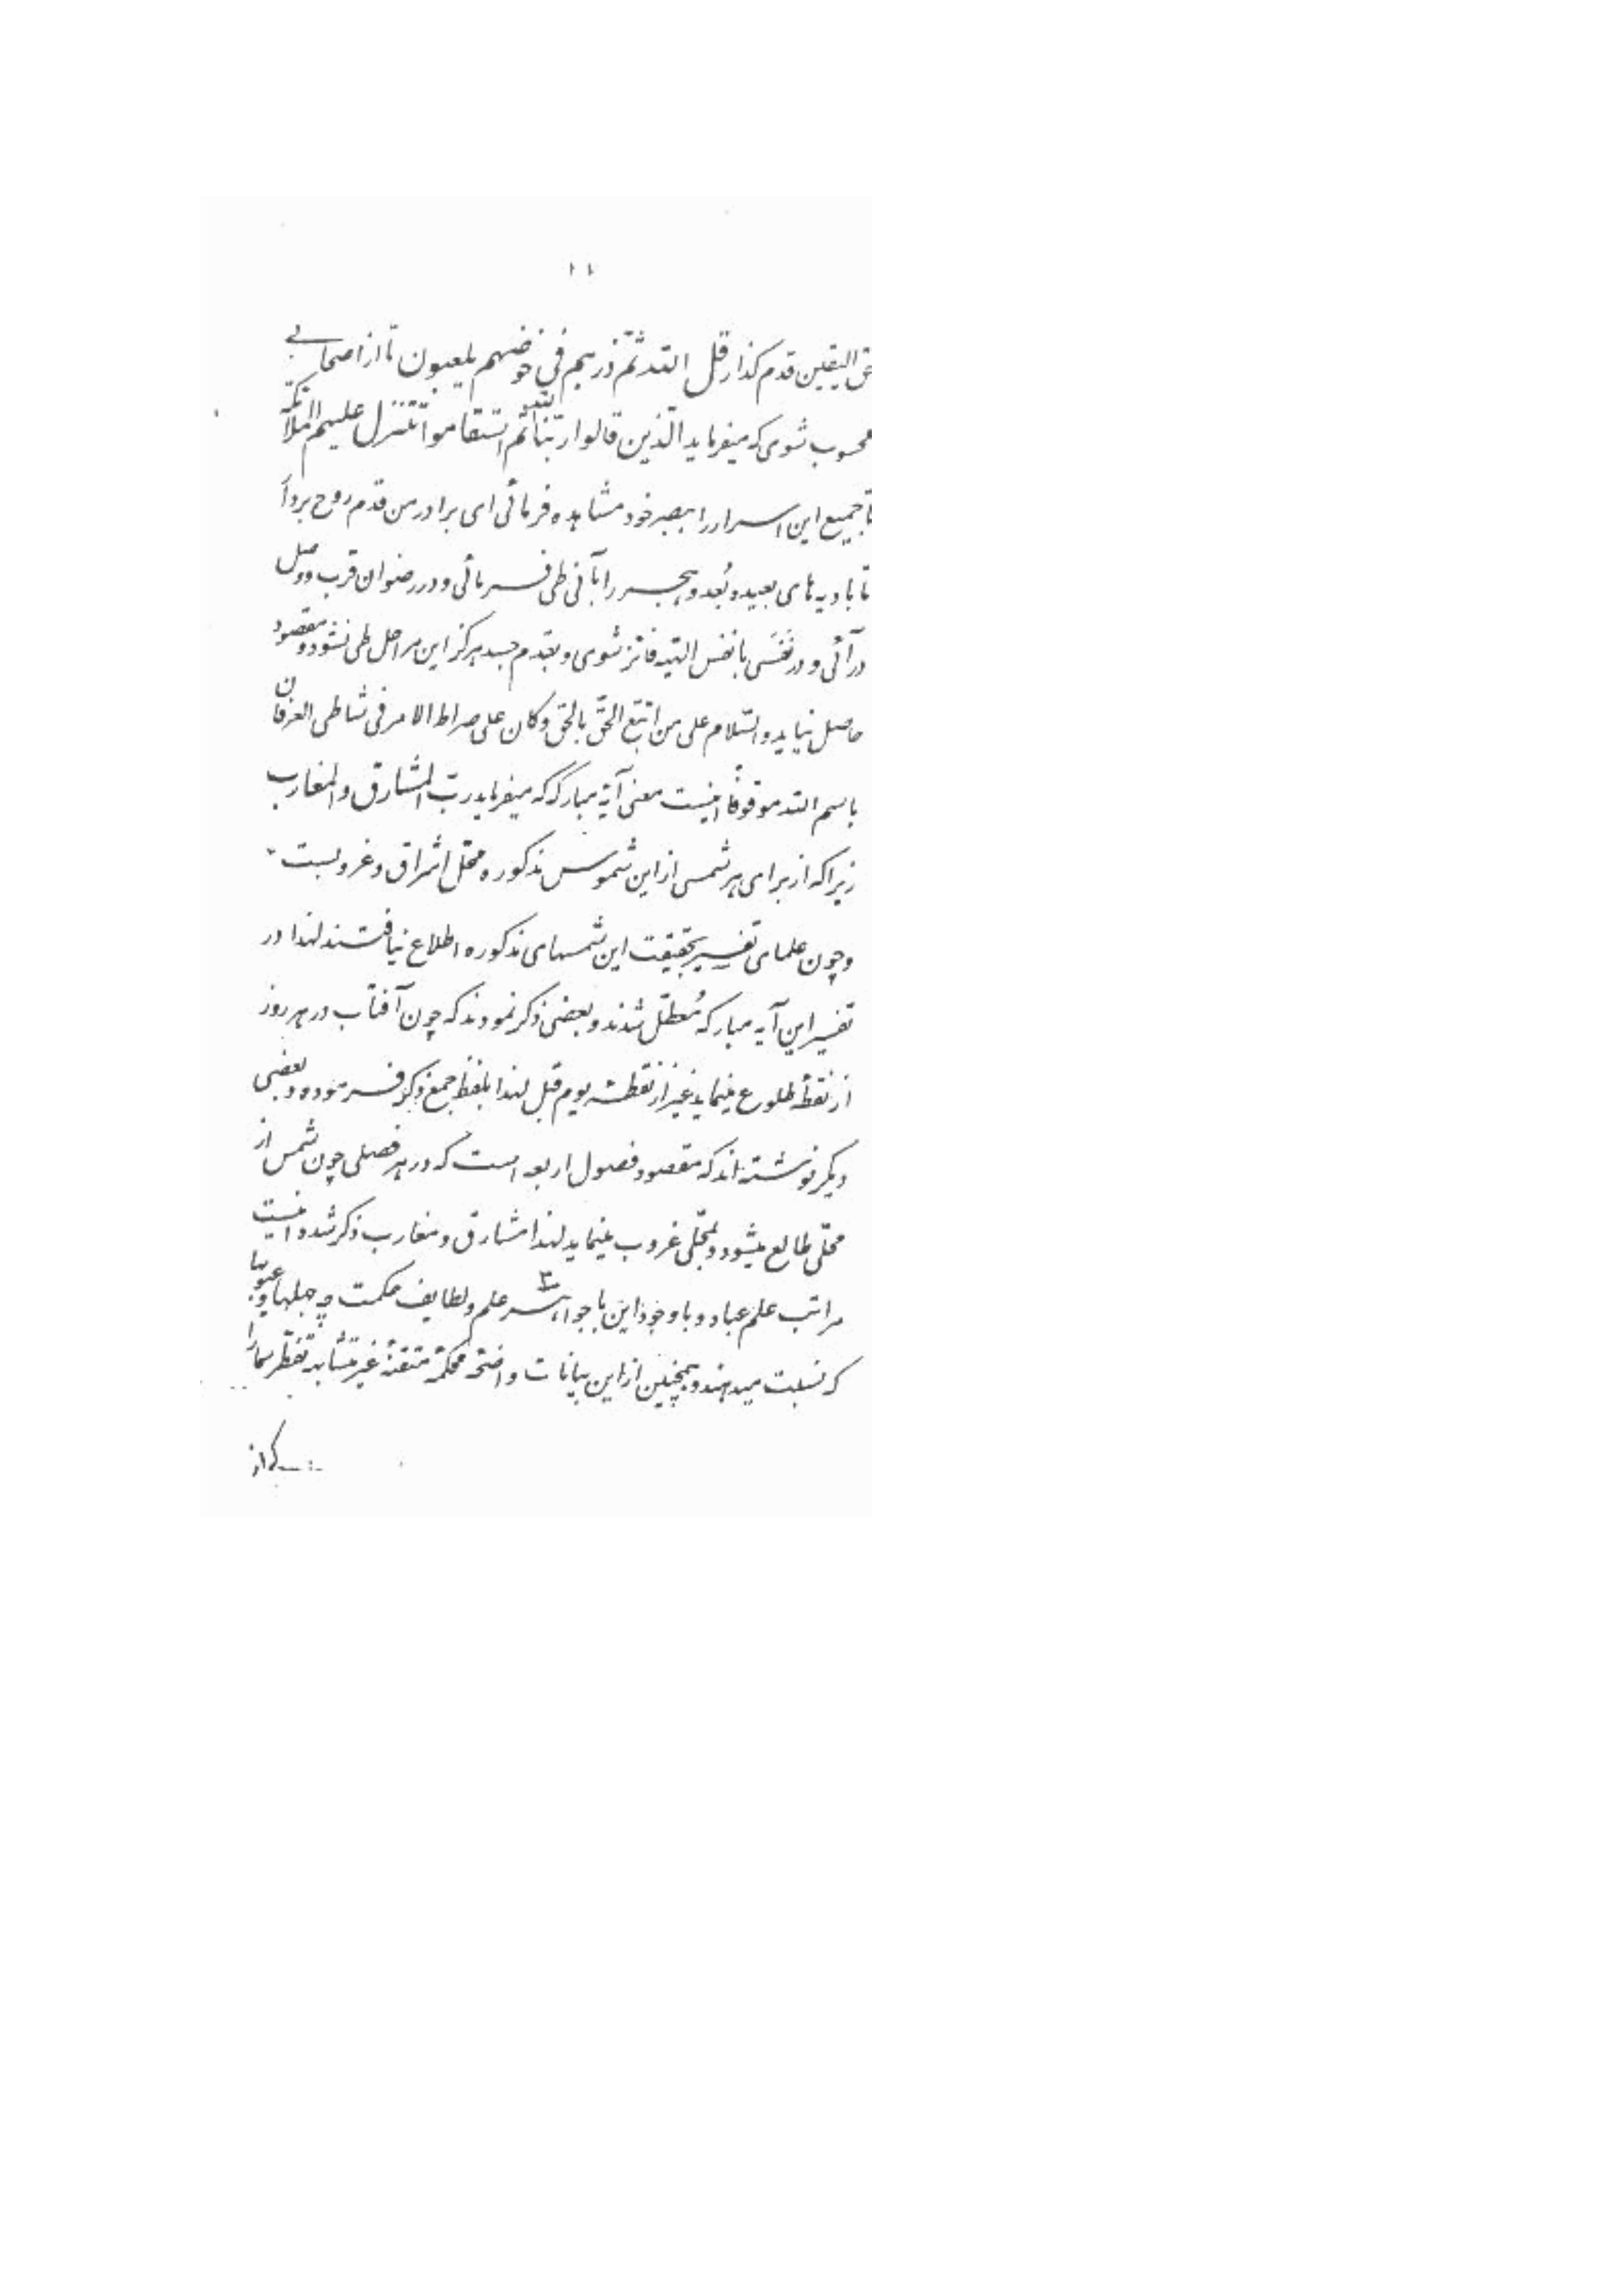 ۱۱
حق الیقین قدم گذار قل الله ثمّ ذرهم فی خوضهم یلعبون تا از اصحابی
محسوب شوی که میفرماید الّذین قالوا ربّنا الله ثمّ استقاموا تتنزل علیهم الملآئکة
تا جمیع این اسرار را ببصر خود مشاهده فرمائی ای برادر من قدم روح بردار
تا بادیه‌های بعیده بُعد و هجر را بآنی طی فرمائی و در رضوان قرب و وصل
درآئی و در نَفَسی بانفس الهیّه فائز شوی و بقدم جسد هرگز این مراحل طی نشود و مقصود
حاصل نیاید والسّلام علی من اتّبع الحقّ بالحق و کان علی صراط الامر فی شاطی العرفان
باسم الله موقوفا اینست معنی آیه مبارکه که میفرماید ربّ المشارق والمغارب
زیرا که از برای هر شمسی از این شموس مذکوره محلّ اشراق و غروبست
و چون علمای تفسیر بحقیقت این شمسهای مذکوره اطلاع نیافتند لهذا در
تفسیر این آیه مبارکه مُعطّل شدند و بعضی ذکر نمودند که چون آفتاب در هر روز
از نقطهٔ طلوع مینماید غیر از نقطهٔ یوم قبل لهذا بلفظ جمع ذکر فرموده و بعضی
دیگر نوشته‌اند که مقصود فصول اربعه است که در هر فصلی چون شمس از
محلّی طالع میشود و بمحلّی غروب مینماید لهذا مشارق و مغارب ذکر شد و اینست
مراتب علم عباد و با وجود این بجواهر علم و لطایف حکمت چه جهلها و عیوبها
که نسبت میدهند و همچنین از این بیانات واضحه محکمهٔ متقنهٔ غیرمتشابه تفطّر سما را
که از